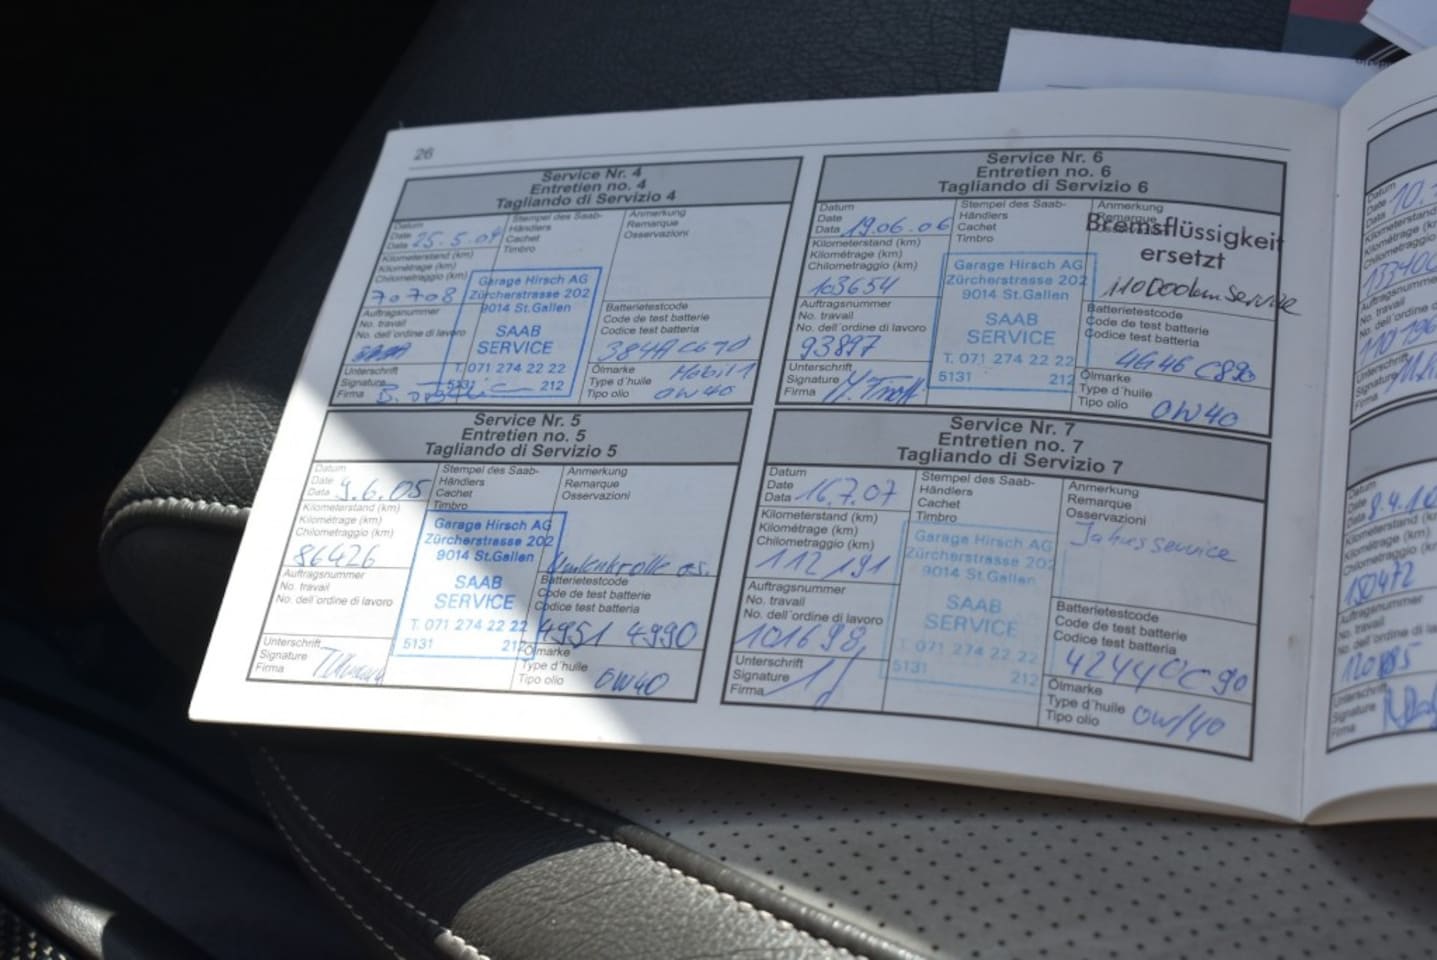 26
Service Nr. 4
Entretien no. 4
Tagliando di Servizio 4
Datum
Date
Data 25.5.04
Kilometerstand (km)
Kilométrage (km)
Chilometraggio (km)
70708
Auftragsnummer
No. travail
No. dell'ordine di lavoro
Unterschrift
Signature
Firma
Stempel des Saab-
Händlers
Cachet
Timbro
Garage Hirsch AG
Zürcherstrasse 202
9014 St.Gallen
SAAB
SERVICE
T. 071 274 22 22
5131 212
Anmerkung
Remarque
Osservazioni
Batterietestcode
Code de test batterie
Codice test batteria
Ölmarke Mobil 1
Type d'huile
Tipo olio 0W40
Service Nr. 5
Entretien no. 5
Tagliando di Servizio 5
Datum
Date
Data 9.6.05
Kilometerstand (km)
Kilométrage (km)
Chilometraggio (km)
86426
Auftragsnummer
No. travail
No. dell'ordine di lavoro
Unterschrift
Signature
Firma
Stempel des Saab-
Händlers
Cachet
Timbro
Garage Hirsch AG
Zürcherstrasse 202
9014 St.Gallen
SAAB
SERVICE
T. 071 274 22 22
5131 212
Anmerkung
Remarque
Osservazioni
Batterietestcode
Code de test batterie
Codice test batteria
4951 4990
Ölmarke
Type d'huile
Tipo olio 0W40
Service Nr. 6
Entretien no. 6
Tagliando di Servizio 6
Datum
Date
Data 19.06.06
Kilometerstand (km)
Kilométrage (km)
Chilometraggio (km)
103654
Auftragsnummer
No. travail
No. dell'ordine di lavoro
93897
Unterschrift
Signature
Firma
Stempel des Saab-
Händlers
Cachet
Timbro
Garage Hirsch AG
Zürcherstrasse 202
9014 St.Gallen
SAAB
SERVICE
T. 071 274 22 22
5131 212
Anmerkung
Remarque
Bremsflüssigkeit
ersetzt
110000km Service
Batterietestcode
Code de test batterie
Codice test batteria
4G46 C890
Ölmarke
Type d'huile
Tipo olio 0W40
Service Nr. 7
Entretien no. 7
Tagliando di Servizio 7
Datum
Date
Data 16.7.07
Kilometerstand (km)
Kilométrage (km)
Chilometraggio (km)
112191
Auftragsnummer
No. travail
No. dell'ordine di lavoro
101698
Unterschrift
Signature
Firma
Stempel des Saab-
Händlers
Cachet
Timbro
Garage Hirsch AG
Zürcherstrasse 202
9014 St.Gallen
SAAB
SERVICE
T. 071 274 22 22
5131 212
Anmerkung
Remarque
Osservazioni
Jahresservice
Batterietestcode
Code de test batterie
Codice test batteria
Ölmarke
Type d'huile
Tipo olio 0W/40
Datum
Date
Data
Kilometerstand
Kilométrage (k
Chilometraggio
133400
Auftragsnummer
No. travail
No. dell'ordine
Unterschrift
Signature
Firma
Datum
Date
Data
Kilometerstand
Kilométrage (km
Chilometraggio
150472
Auftragsnummer
No. travail
No. dell'ordine
Unterschrift
Signature
Firma